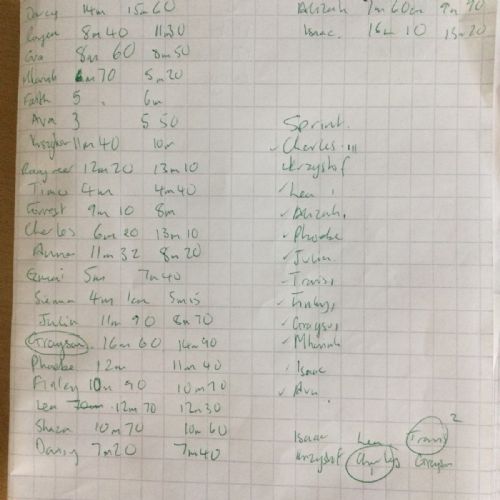 Darcy 14m 15m 60
8m 40 11m30
Eva 8m 60 8m 50
6m 70 5m 20
Faith 5. 6m
Ava 3 5 50
11m 40 10m
12m20 13m10
Timeo 4m 4m40
Forrest 9m 10 8m
Charles 6m 20 13m 10
Anna 11m 32 8m 20
5m 7m40
Sienna 4m 1cm 5m15
Julia 11m 90 8m 70
Grayson 16m 60 14m90
Phoebe 12m 11m 40
Finley 10m 90 10m 70
Len 12m 70 12m30
Shazn 10m 70 10m 60
Danny 7m20 7m40
Alizah 7m 60cm 9m 90
Isaac. 16m 10 15m 20
Sprint.
Charles
Krzystof
Len
Alizah
Phoebe
Julia
Travis
Finley
Grayson
Mhairah
Isaac
Ava
2
Isaac Len Travis
Krzystof Charles Grayson